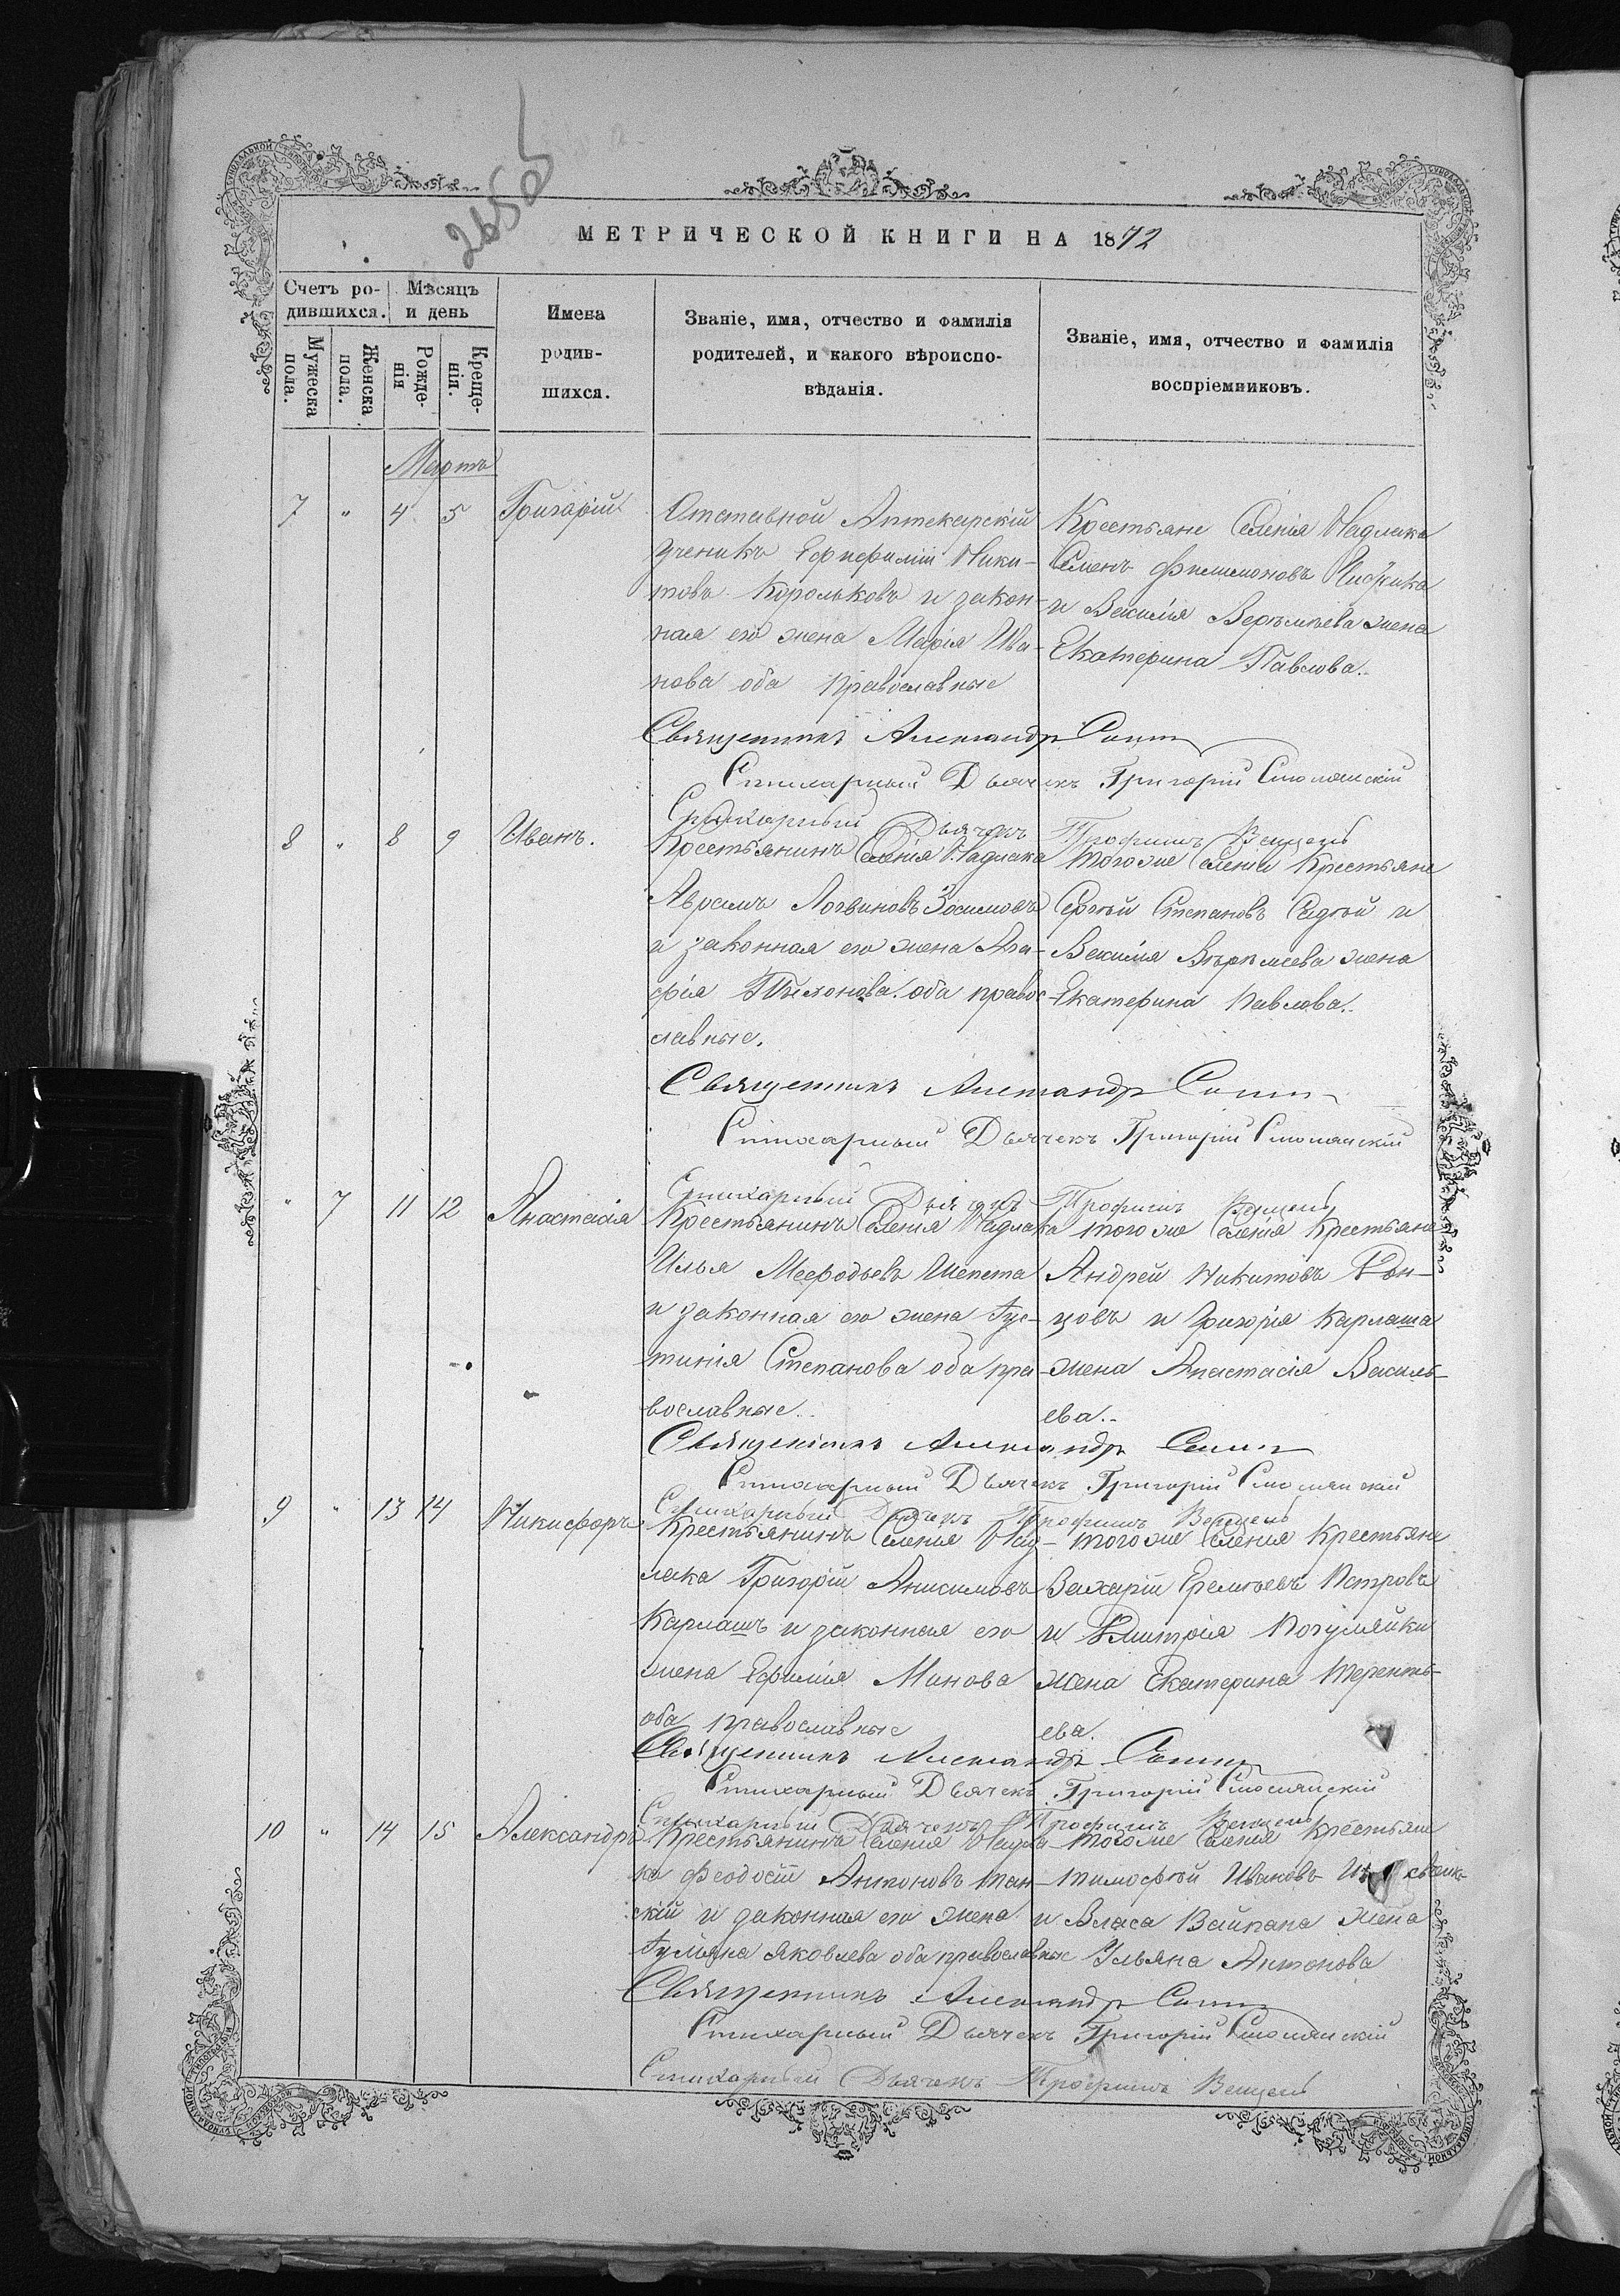 2656
МЕТРИЧЕСКОЙ КНИГИ НА 1872
Счетъ ро-
дившихся.
Мѣсяцъ
и день
Мужеска
пола.
Женска
пола.
Рожде-
нія
Креще-
нія.
Имена
родив-
шихся.
Званіе, имя, отчество и фамилія
родителей, и какого вѣроиспо-
вѣданія.
Званіе, имя, отчество и фамилія
воспріемниковъ.
Мартъ
7 " 4 5 Григорій
Отставной Аптекарскій
ученикъ Ники-
товъ Корольковъ и закон-
ная его жена Марія Ива-
нова оба православные
Крестьяне Селенія Надлака
Семенъ Филимоновъ
и Василія Веремѣева жена
Екатерина Павлова.
Священникъ Александр
Стихарный Дьячекъ Григорій Смолянскій
Стихарный Дьячекъ Трофимъ
8 " 8 9 Иванъ.
Крестьянинъ Селенія Надлака
Аврамъ Логвиновъ Зосимовъ
и законная его жена Ага-
фія Тихонова. оба правос-
лавные.
того же Селенія Крестьяне
Сергѣй Степановъ Седой и
Василія Веремѣева жена
Екатерина Павлова.
Священникъ Александр
Стихарный Дьячекъ Григорій Смолянскій
Стихарный Дьячекъ Трофимъ
" 7 11 12 Анастасія
Крестьянинъ Селенія Надлака
Илья Мефодьевъ Шепета
и законная его жена Іус-
тинія Степанова оба пра-
вославные.
того же Селенія Крестьяне
Андрей Никитовъ
цовъ и Григорія Карлаша
жена Анастасія Василь-
ева.
Священникъ Александр
Стихарный Дьячекъ Григорій Смолянскій
Стихарный Дьячекъ Трофимъ
9 " 13 14 Никифоръ
Крестьянинъ Селенія Над-
лака Григорій Анисимовъ
Карлашъ и законная его
жена Ефимія Минова
оба православные
того же Селенія Крестьяне
Захарій Еремѣевъ Петровъ
и Дмитрія
жена Екатерина Теренть-
ева.
Священникъ Александр
Стихарный Дьячекъ Григорій Смолянскій
Стихарный Дьячекъ Трофимъ
10 " 14 15 Александръ
Крестьянинъ Селенія Надла-
ка Феодосій Антоновъ Ман-
скій и законная его жена
Іульяна Яковлева оба православные
того же Селенія Крестьяне
Тимофѣй Ивановъ
и Власа жена
Ульяна Антонова
Священникъ Александр
Стихарный Дьячекъ Григорій Смолянскій
Стихарный Дьячекъ Трофимъ